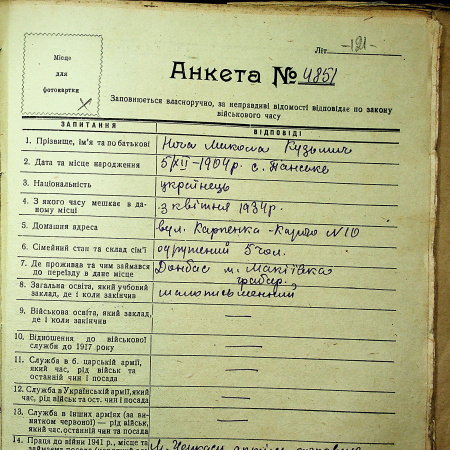 Літ. -121-
Місце
для
фотокартки
Анкета № 4851
Заповнюється власноручно, за неправдиві відомості відповідає по закону
військового часу
ЗАПИТАННЯ
ВІДПОВІДІ
1. Прізвище, ім'я та по батькові
Ноча Микола Кузьмич
2. Дата та місце народження
5/XII-1904р. с. Панське
3. Національність
українець
4. З якого часу мешкає в даному місці
з квітня 1934р.
5. Домашня адреса
вул. Карпенка-Карого N 10
6. Сімейний стан та склад сім'ї
одружений 5 чол.
7. Де проживав та чим займався
до переїзду в дане місце
Донбас м. Макіївка
грабар.
8. Загальна освіта, який учбовий
заклад, де і коли закінчив
малописьменний
9. Військова освіта, який заклад,
де і коли закінчив
10. Відношення до військової
служби до 1917 року
11. Служба в б. царській армії,
який час, рід військ та
останній чин і посада
12. Служба в Українській армії, який
час, рід військ та ост. чин і посада
13. Служба в інших арміях (за ви-
нятком червоної) — рід військ,
який час, останній чин та посада
14. Праця до війни 1941 р., місце та
м. Черкаси